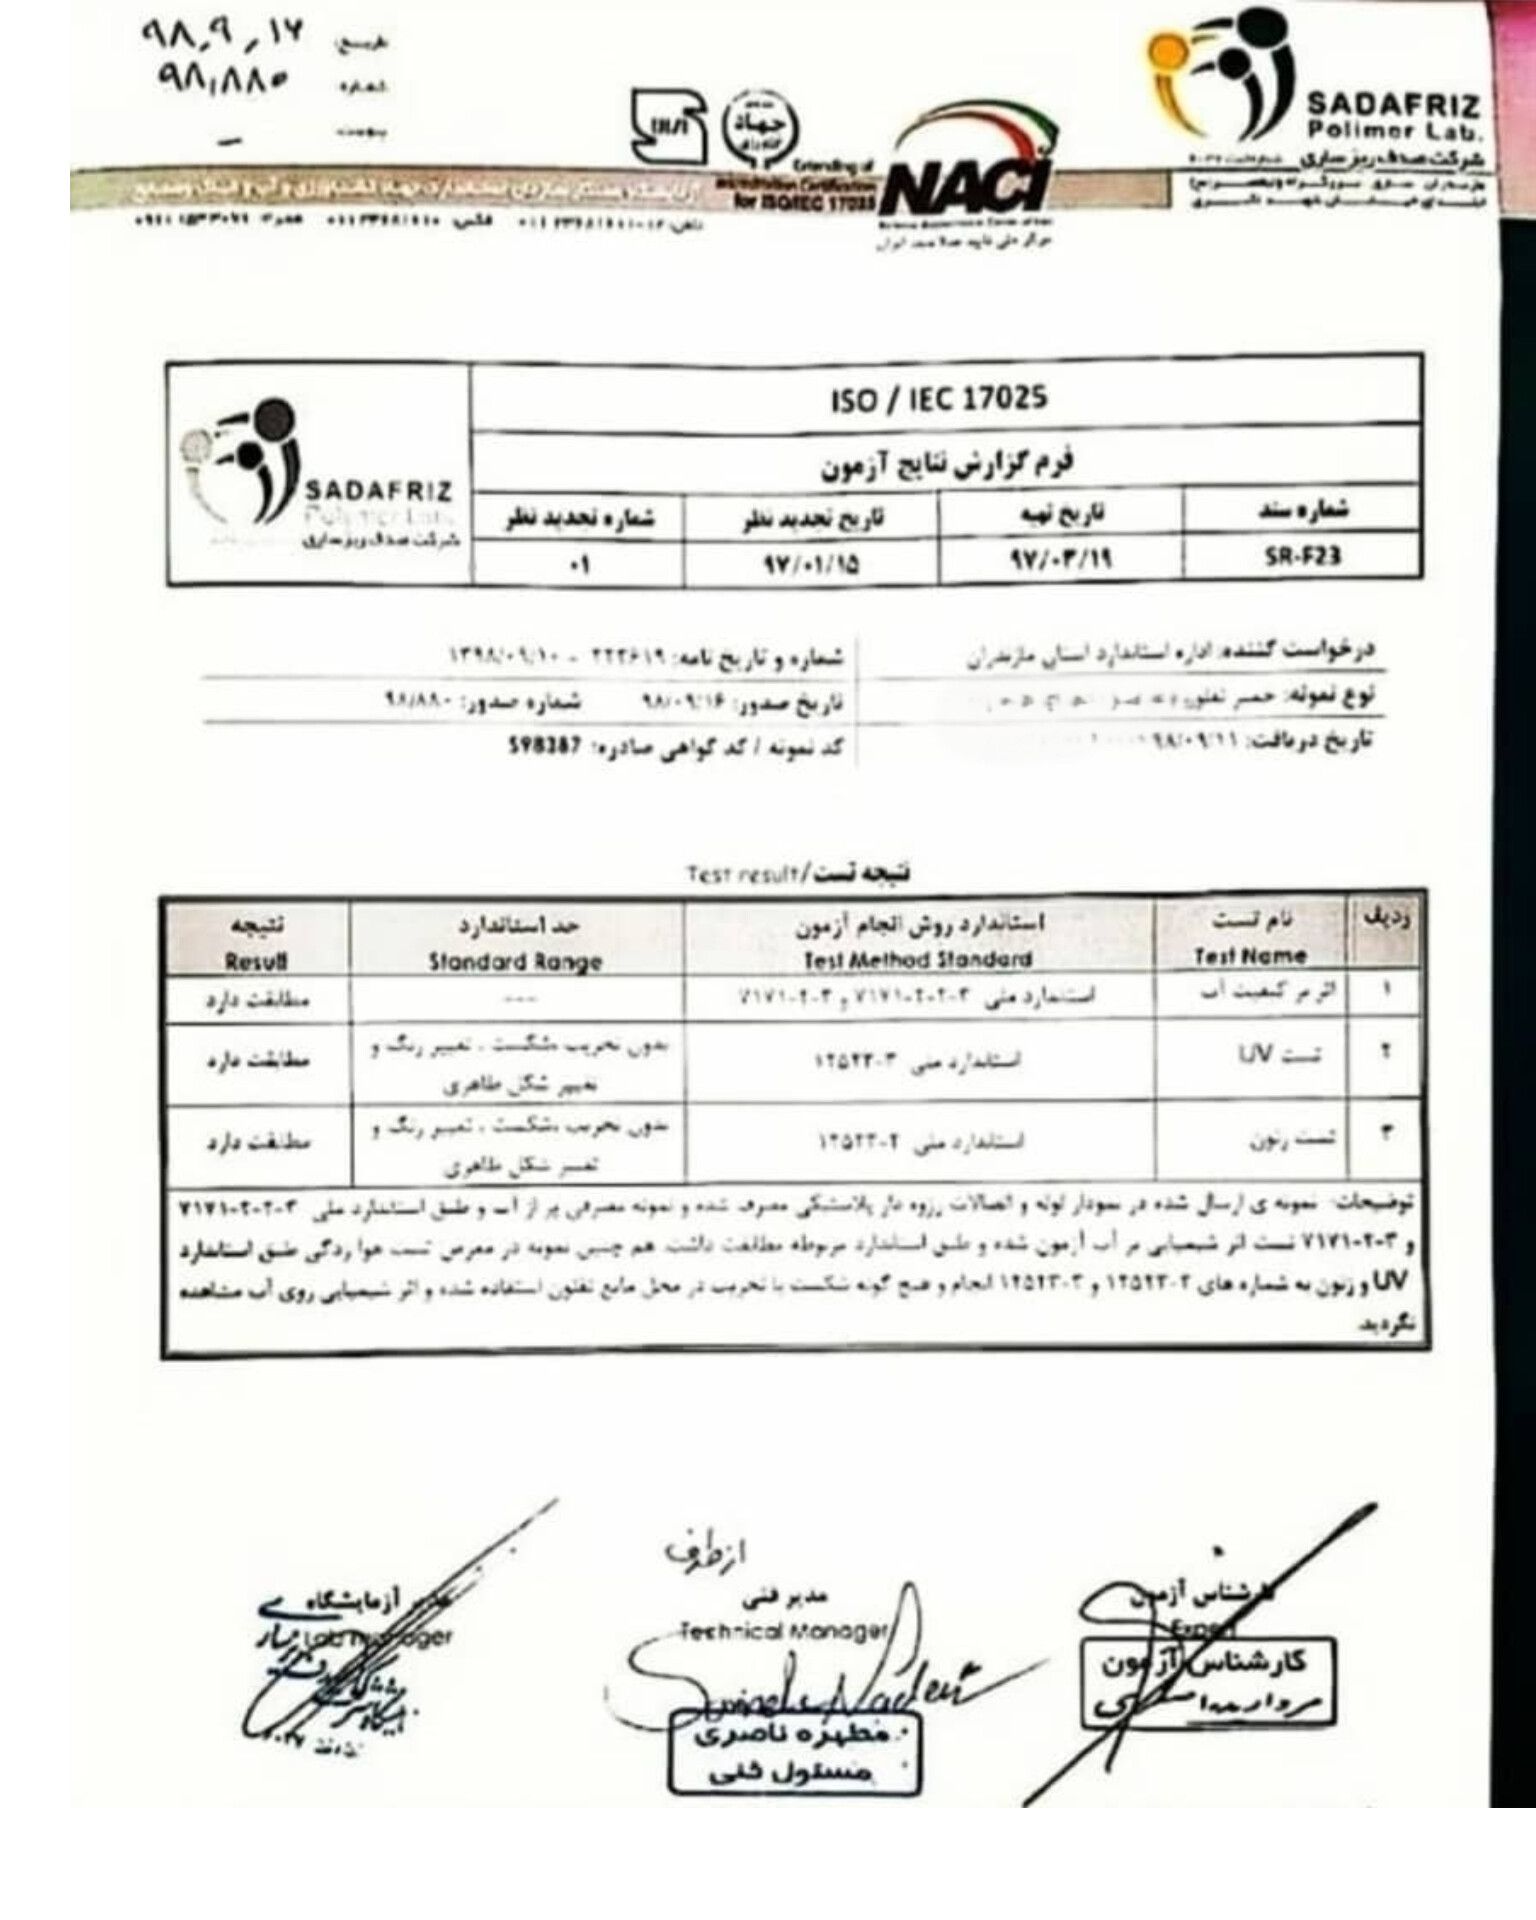 تاریخ: ۹۸,۹,۱۷
شماره: ۹۸,۸۸۰
پیوست: –
SADAFRIZ
Polimer Lab.
شرکت صدف ریز ساری
جهاد
Extending of
Accreditation Certification
for ISO/IEC 17025
NACI
مرکز ملی تایید صلاحیت ایران
ISO / IEC 17025
فرم گزارش نتایج آزمون
شماره سند تاریخ تهیه تاریخ تجدید نظر شماره تجدید نظر
SR-F23 ۹۷/۰۳/۱۹ ۹۷/۰۱/۱۵ ۰۱
SADAFRIZ
Polymer Lab.
شرکت صدف ریز ساری
درخواست کننده: اداره استاندارد استان مازندران
شماره و تاریخ نامه: ۲۲۳۶۱۹ - ۱۳۹۸/۰۹/۱۰
نوع نمونه:
تاریخ صدور: ۹۸/۰۹/۱۶ شماره صدور: ۹۸/۸۸۰
تاریخ دریافت: ۹۸/۰۹/۱۱
کد نمونه / کد گواهی صادره: S98387
نتیجه تست/Test result
ردیف نام تست استاندارد روش انجام آزمون حد استاندارد نتیجه
Test Name Test Method Standard Standard Range Result
۱ اثر بر کیفیت آب استاندارد ملی ۳-۲-۲-۷۱۷۱ و ۳-۲-۷۱۷۱ --- مطابقت دارد
۲ تست UV استاندارد ملی ۳-۱۲۵۲۳ بدون تخریب ،شکست ، تغییر رنگ و
تغییر شکل ظاهری مطابقت دارد
۳ تست زنون استاندارد ملی ۲-۱۲۵۲۳ بدون تخریب ،شکست ، تغییر رنگ و
تغییر شکل ظاهری مطابقت دارد
توضیحات: نمونه ی ارسال شده در نمودار لوله و اتصالات رزوه دار پلاستیکی مصرف شده و نمونه مصرفی پر از آب و طبق استاندارد ملی ۳-۲-۲-۷۱۷۱
و ۳-۲-۷۱۷۱ تست اثر شیمیایی بر آب آزمون شده و طبق استاندارد مربوطه مطابقت داشت. هم چنین نمونه در معرض تست هوا زدگی طبق استاندارد
UV و زنون به شماره های ۲-۱۲۵۲۳ و ۳-۱۲۵۲۳ انجام و هیچ گونه شکست یا تخریب در محل مایع تفلون استفاده شده و اثر شیمیایی روی آب مشاهده
نگردید.
کارشناس آزمون
Expert
کارشناس آزمون
از طرف
مدیر فنی
Technical Manager
مطهره ناصری
مسئول فنی
مدیر آزمایشگاه
Lab manager